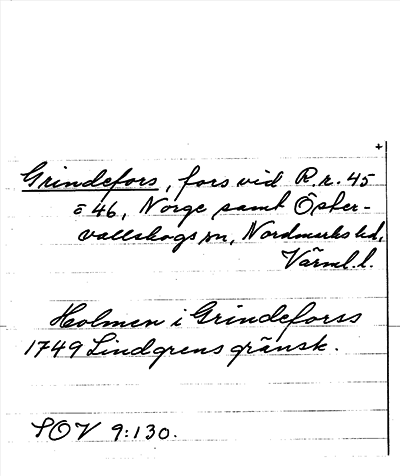 +
Grindefors, fors vid R.r. 45
o 46, Norge samt Öster-
vallskogs sn, Nordmarks hd,
Värml.l.
Holmen i Grindeforss
1749 Lindgrens gränsk.
SOV 9:130.